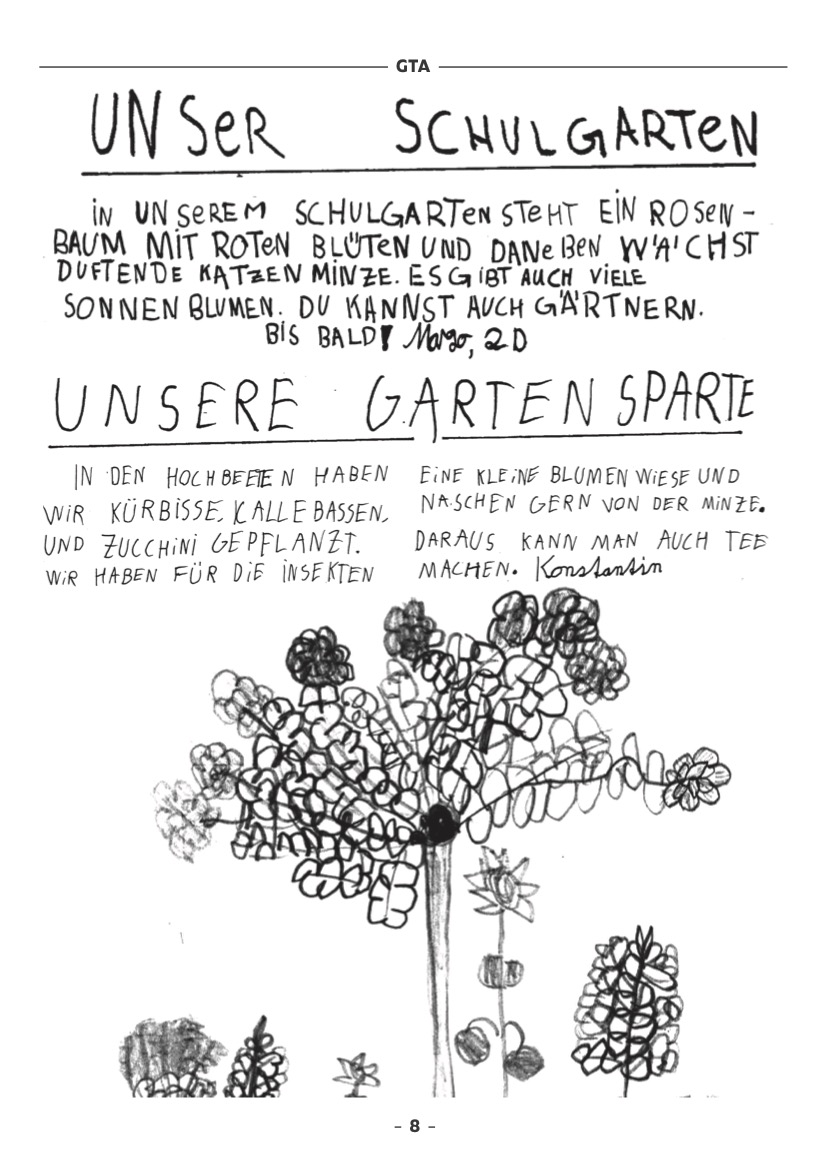 GTA
UNSER SCHULGARTEN
IN UNSEREM SCHULGARTEN STEHT EIN ROSEN-
BAUM MIT ROTEN BLÜTEN UND DANEBEN WÄCHST
DUFTENDE KATZENMINZE. ES GIBT AUCH VIELE
SONNENBLUMEN. DU KANNST AUCH GÄRTNERN.
BIS BALD! Margo, 2D
UNSERE GARTENSPARTE
IN DEN HOCHBEETEN HABEN
WIR KÜRBISSE, KALLEBASSEN,
UND ZUCCHINI GEPFLANZT.
WIR HABEN FÜR DIE INSEKTEN
EINE KLEINE BLUMENWIESE UND
NASCHEN GERN VON DER MINZE.
DARAUS KANN MAN AUCH TEE
MACHEN. Konstantin
- 8 -